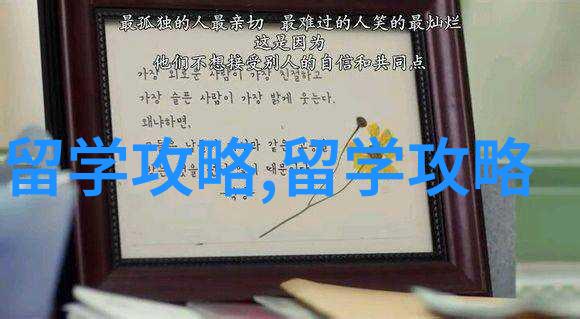 最孤独的人最亲切 最难过的人笑的最灿烂
这是因为
他们不想接受别人的自信和共同点
가장 외로운 사람이 가장 친절하고
가장 슬픈 사람이 가장 밝게 웃는다.
왜냐하면,
留学攻略,留学攻略